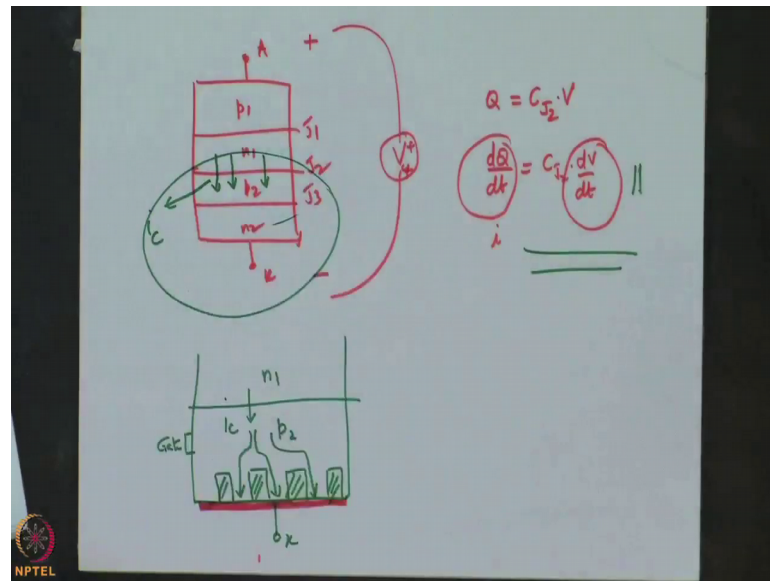 A +
p1
J1
n1
J2
p2
J3
n2
K
-
V
+
ic
Q = C_J2 · V
dQ/dt = C_J2 · dV/dt
i
n1
ic
p2
Gate
K
NPTEL